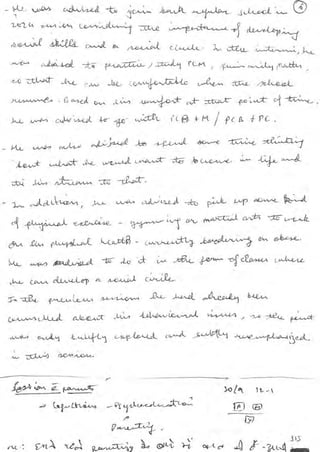 - He was advised to join back regular school in
2024 session considering the importance of developing
social skills and a social circle. In the interim, he
was advised to practice / study PCM, primarily Maths,
so that he can be comfortable when the school
resumes. Based on his comfort at that point of time,
he was advised to go with PCB + M / PCB + PE.
- He was also advised to spend some time thinking
'bout what he would want to become in life and
his stream to that.
- In addition, he was advised to pick up some kind
of physical exercise - gymming or martial arts to work
on his physical health - currently bordering on obese.
He was advised to do it in the form of classes where
he can develop a social circle.
In the previous sessions he had already been
counselled about his behavioural issues, so the point
was only briefly explored and subtly reemphasized
in this session.
Session c parents 30/9 12-1
Psychoeducation
Parenting.